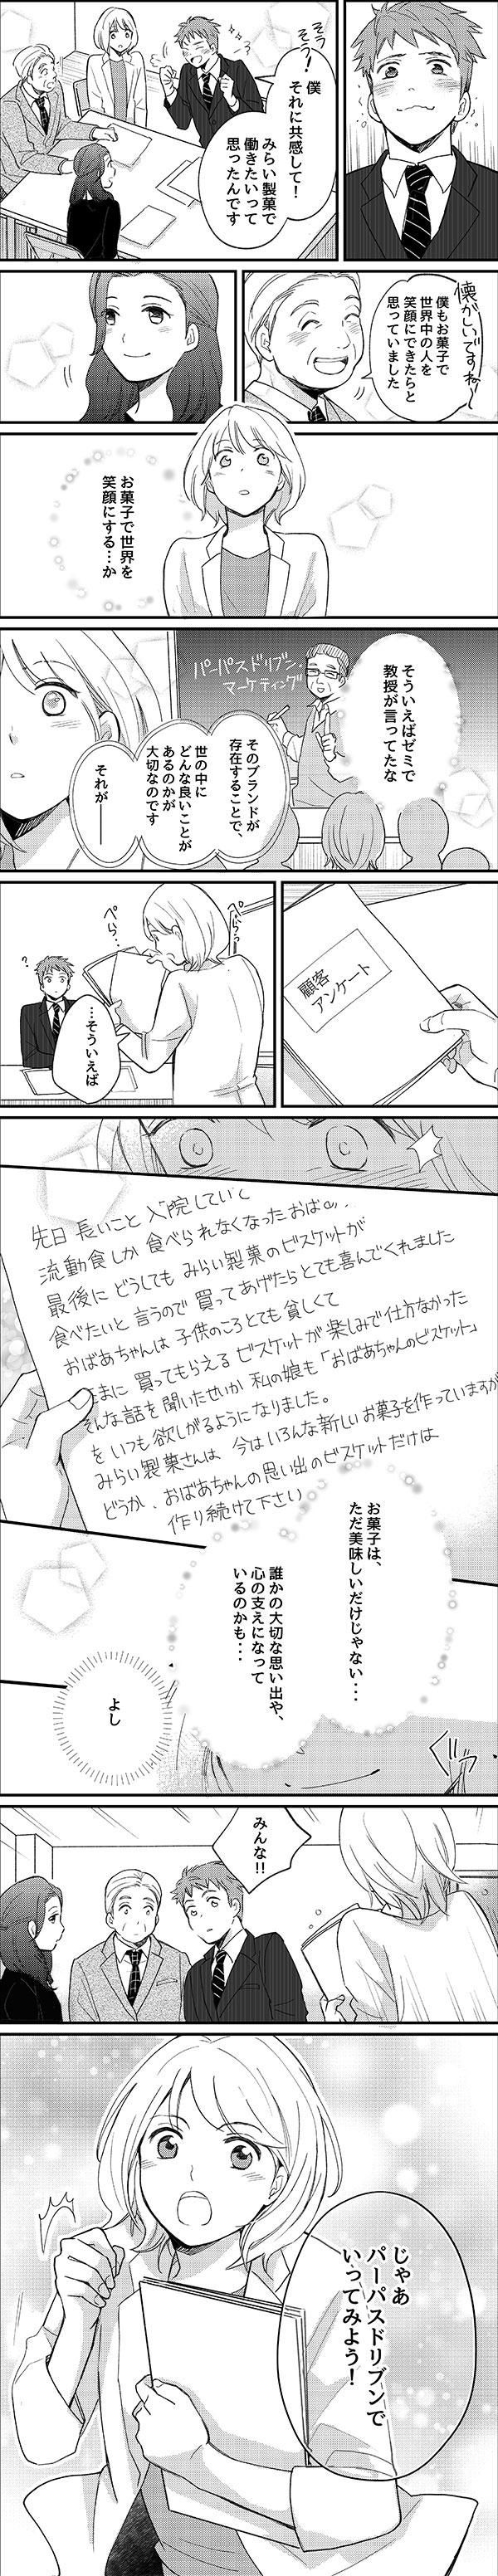 そう
そう！
僕
それに共感して！
みらい製菓で
働きたいって
思ったんです
懐かしいですね〜
僕もお菓子で
世界中の人を
笑顔にできたらと
思っていました
お菓子で世界を
笑顔にする…か
そういえばゼミで
教授が言ってたな
パーパスドリブン・
マーケティング
そのブランドが
存在することで、
世の中に
どんな良いことが
あるのかが
大切なのです
それが──
顧客
アンケート
ぺらっ
ぺら…
?
…そういえば
先日 長いこと 入院していて
流動食しか 食べられなくなったおば
最後に どうしても みらい製菓の ビスケットが
食べたいと 言うので 買ってあげたらとても喜んでくれました
おばあちゃんは 子供のころとても 貧しくて
たまに 買ってもらえる ビスケットが 楽しみで仕方なかった
そんな話を 聞いたせいか 私の娘も「おばあちゃんのビスケット」
を いつも 欲しがるようになりました。
みらい製菓さんは 今はいろんな新しいお菓子を作っていますが
どうか、おばあちゃんの思い出のビスケットだけは
作り続けて下さい
お菓子は、
ただ美味しいだけじゃない...
誰かの大切な思い出や、
心の支えになって
いるのかも...
よし
ぐっ
みんな!!
じゃあ
パーパスドリブンで
いってみよう！